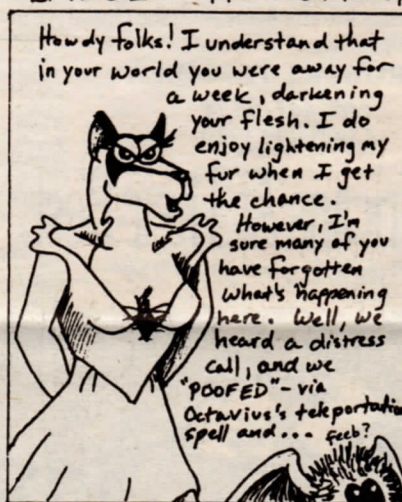 Howdy folks! I understand that
in your world you were away for
a week, darkening
your flesh. I do
enjoy lightening my
fur when I get
the chance.
However, I'm
sure many of you
have forgotten
what's happening
here. Well, we
heard a distress
call, and we
"POOFED" - via
Octavius's teleportation
spell and...
feeb?